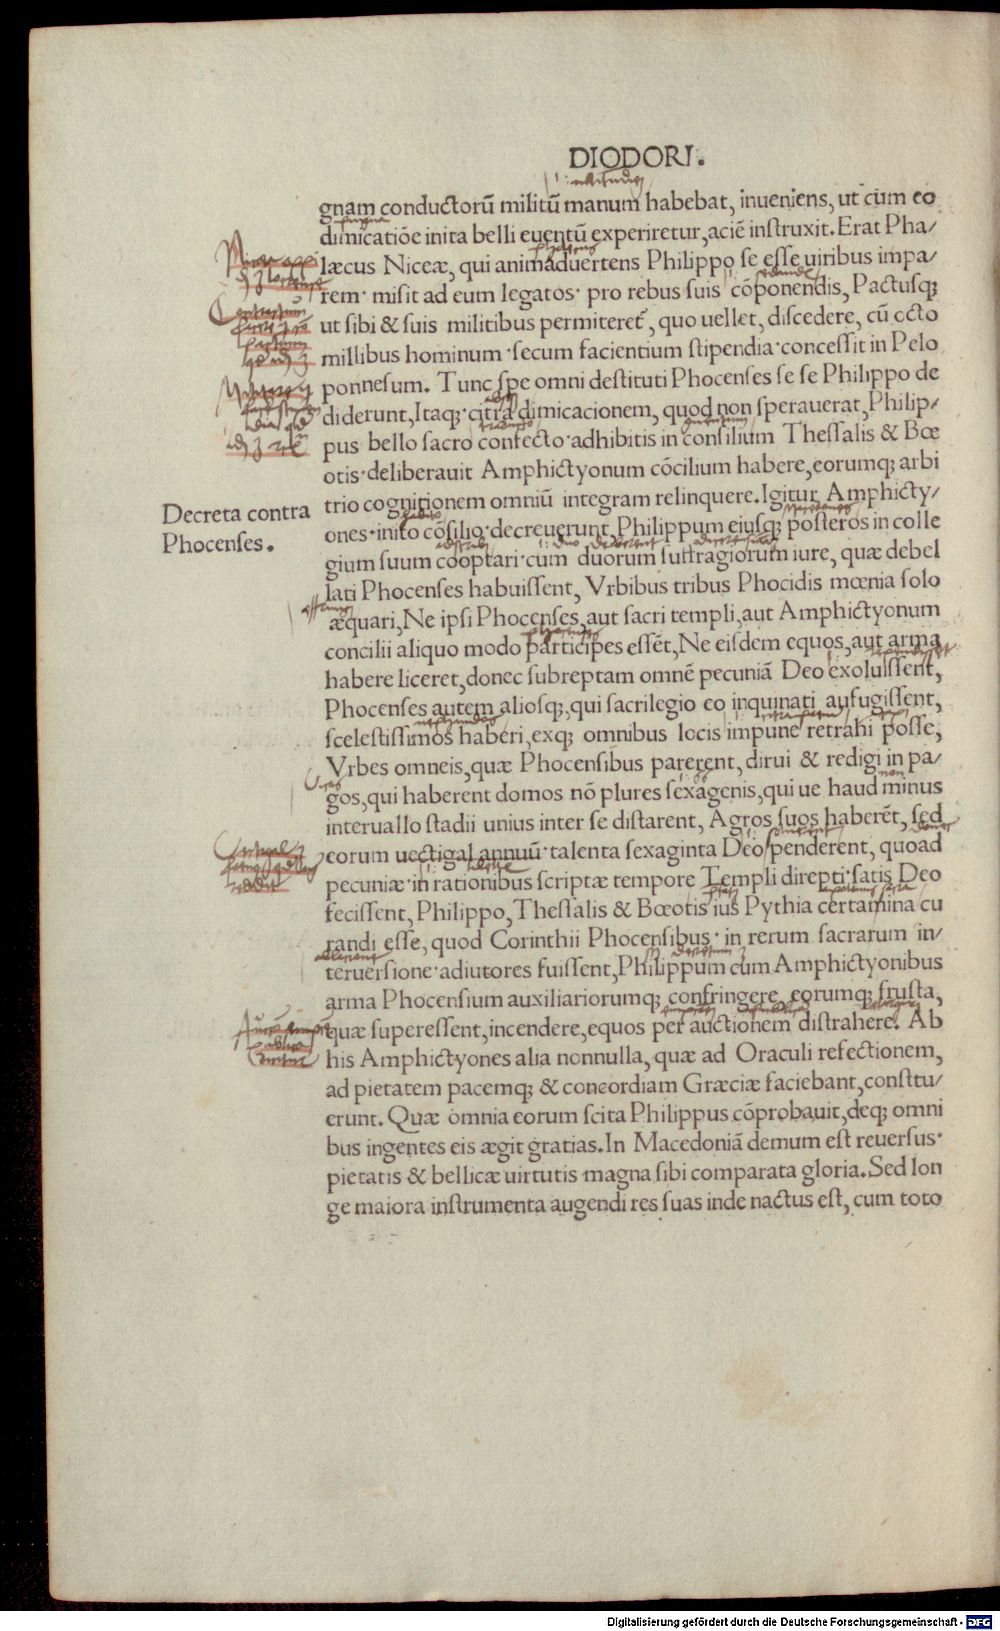 DIODORI.
gnam conductorũ militũ manum habebat, inueniens, ut cum eo
dimicatiõe inita belli euentũ experiretur, aciẽ instruxit. Erat Pha/
læcus Niceæ, qui animaduertens Philippo se esse uiribus impa/
rem· misit ad eum legatos· pro rebus suis cõponendis, Pactusq;
ut sibi & suis militibus permiteret̃, quo uellet, discedere, cũ octo
millibus hominum ·secum facientium stipendia·concessit in Pelo
ponnesum. Tunc spe omni destituti Phocenses se se Philippo de
diderunt, Itaq; citra dimicacionem, quod non sperauerat, Philip/
pus bello sacro confecto·adhibitis in consilium Thessalis & Bœ
otis·deliberauit Amphictyonum cõcilium habere, eorumq; arbi
Decreta contra
Phocenses.
trio cognitionem omniũ integram relinquere. Igitur Amphicty/
ones·inito cõsilio·decreuerunt, Philippum eiusq; posteros in colle
gium suum cooptari·cum duorum suffragiorum iure, quæ debel
lati Phocenses habuissent, Vrbibus tribus Phocidis mœnia solo
æquari, Ne ipsi Phocenses, aut sacri templi, aut Amphictyonum
concilii aliquo modo participes essẽt, Ne eisdem equos, aut arma
habere liceret, donec subreptam omnẽ pecuniã Deo exoluissent,
Phocenses autem aliosq;, qui sacrilegio eo inquinati aufugissent,
scelestissimos haberi, exq; omnibus locis impune retrahi posse,
Vrbes omneis, quæ Phocensibus parerent, dirui & redigi in pa/
gos, qui haberent domos nõ plures sexagenis, qui ue haud minus
interuallo stadii unius inter se distarent, Agros suos haberẽt, sed
eorum uectigal annuũ·talenta sexaginta Deo penderent, quoad
pecuniæ·in rationibus scriptæ tempore Templi direpti·satis Deo
fecissent, Philippo, Thessalis & Bœotis ius Pythia certamina cu
randi esse, quod Corinthii Phocensibus·in rerum sacrarum in/
teruersione·adiutores fuissent, Philippum cum Amphictyonibus
arma Phocensium auxiliariorumq; confringere, eorumq; frusta,
quæ superessent, incendere, equos per auctionem distrahere. Ab
his Amphictyones alia nonnulla, quæ ad Oraculi refectionem,
ad pietatem pacemq; & concordiam Græciæ faciebant, consttu/
erunt. Quæ omnia eorum scita Philippus cõprobauit, deq; omni
bus ingentes eis ægit gratias. In Macedoniã demum est reuersus·
pietatis & bellicæ uirtutis·magna sibi comparata gloria. Sed lon
ge maiora instrumenta augendi res suas inde nactus est, cum toto
Digitalisierung gefördert durch die Deutsche Forschungsgemeinschaft - DFG